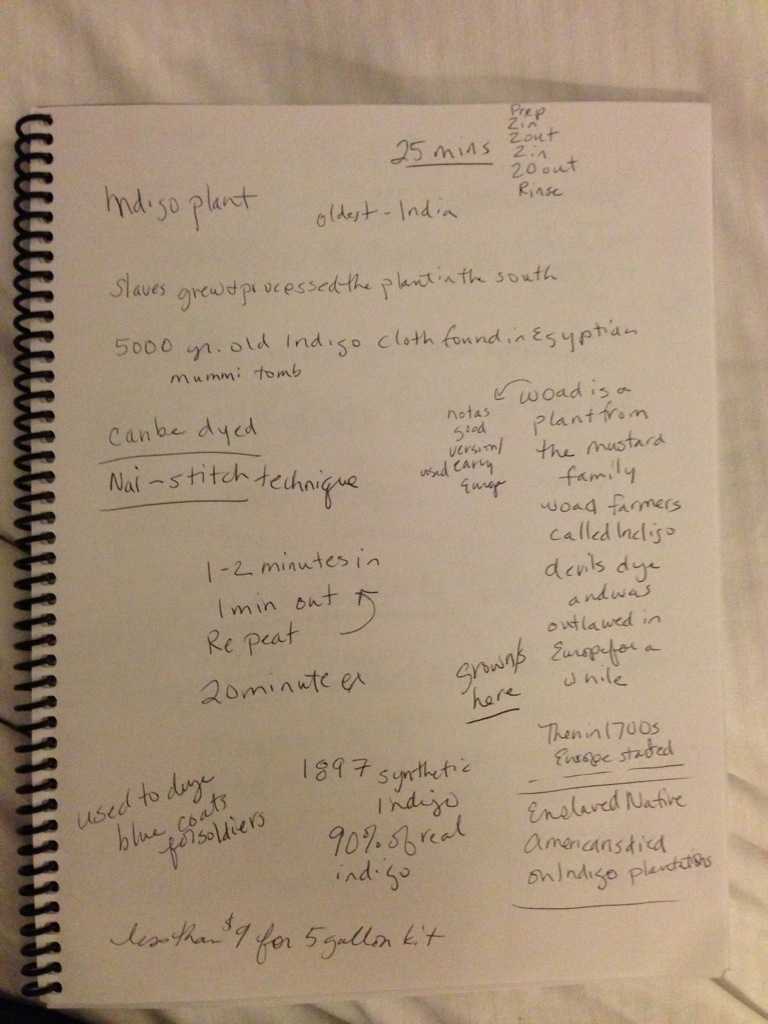 Prep
2 in
2 out
2 in
20 out
Rinse
25 mins
Indigo plant
oldest - India
Slaves grew & processed the plant in the south
5000 yr. old Indigo cloth found in Egyptian
mummi tomb
can be dyed
Nai - stitch technique
1-2 minutes in
1 min out
Repeat
20 minute
not as
good
version/
used early
Europe
woad is a
plant from
the mustard
family
woad farmers
called Indigo
devils dye
and was
outlawed in
Europe for a
while
grown
here
Then in 1700s
Europe started
Enslaved Native
Americans died
on Indigo plantations
used to dye
blue coats
for soldiers
1897 synthetic
Indigo
90% of real
indigo
less than $9 for 5 gallon kit